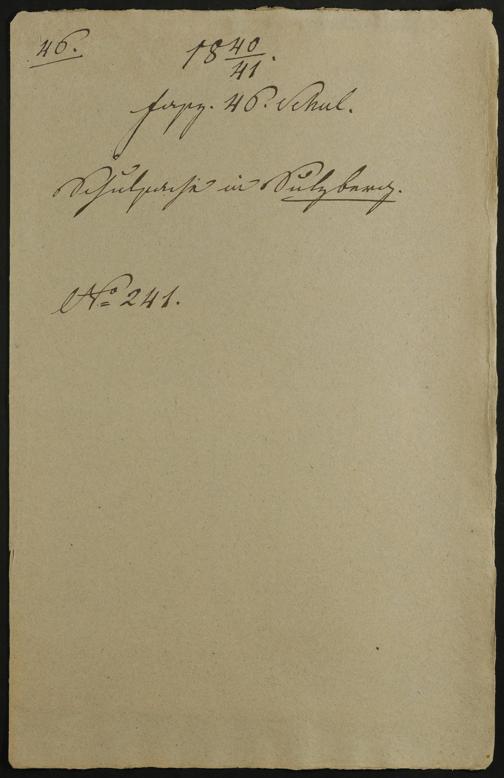 46.
18 40/41.
Fasz. 46. Schul.
Schulsache in Sulzberg.
No 241.